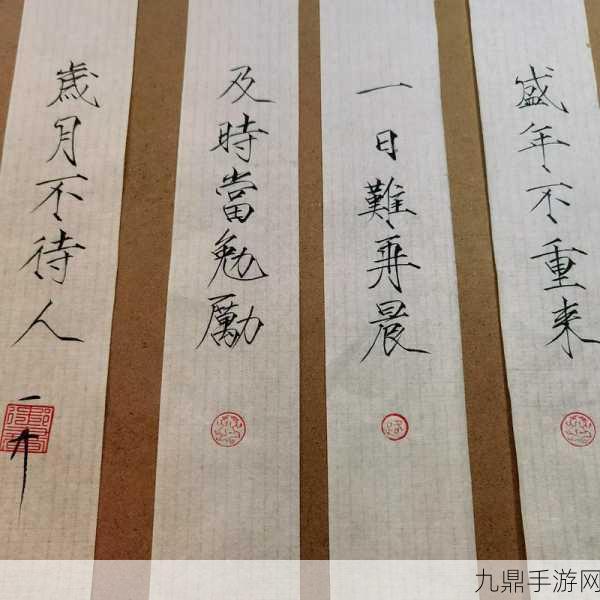 盛年不重来
一日難再晨
及時當勉厲力
歲月不待人
九鼎手游网